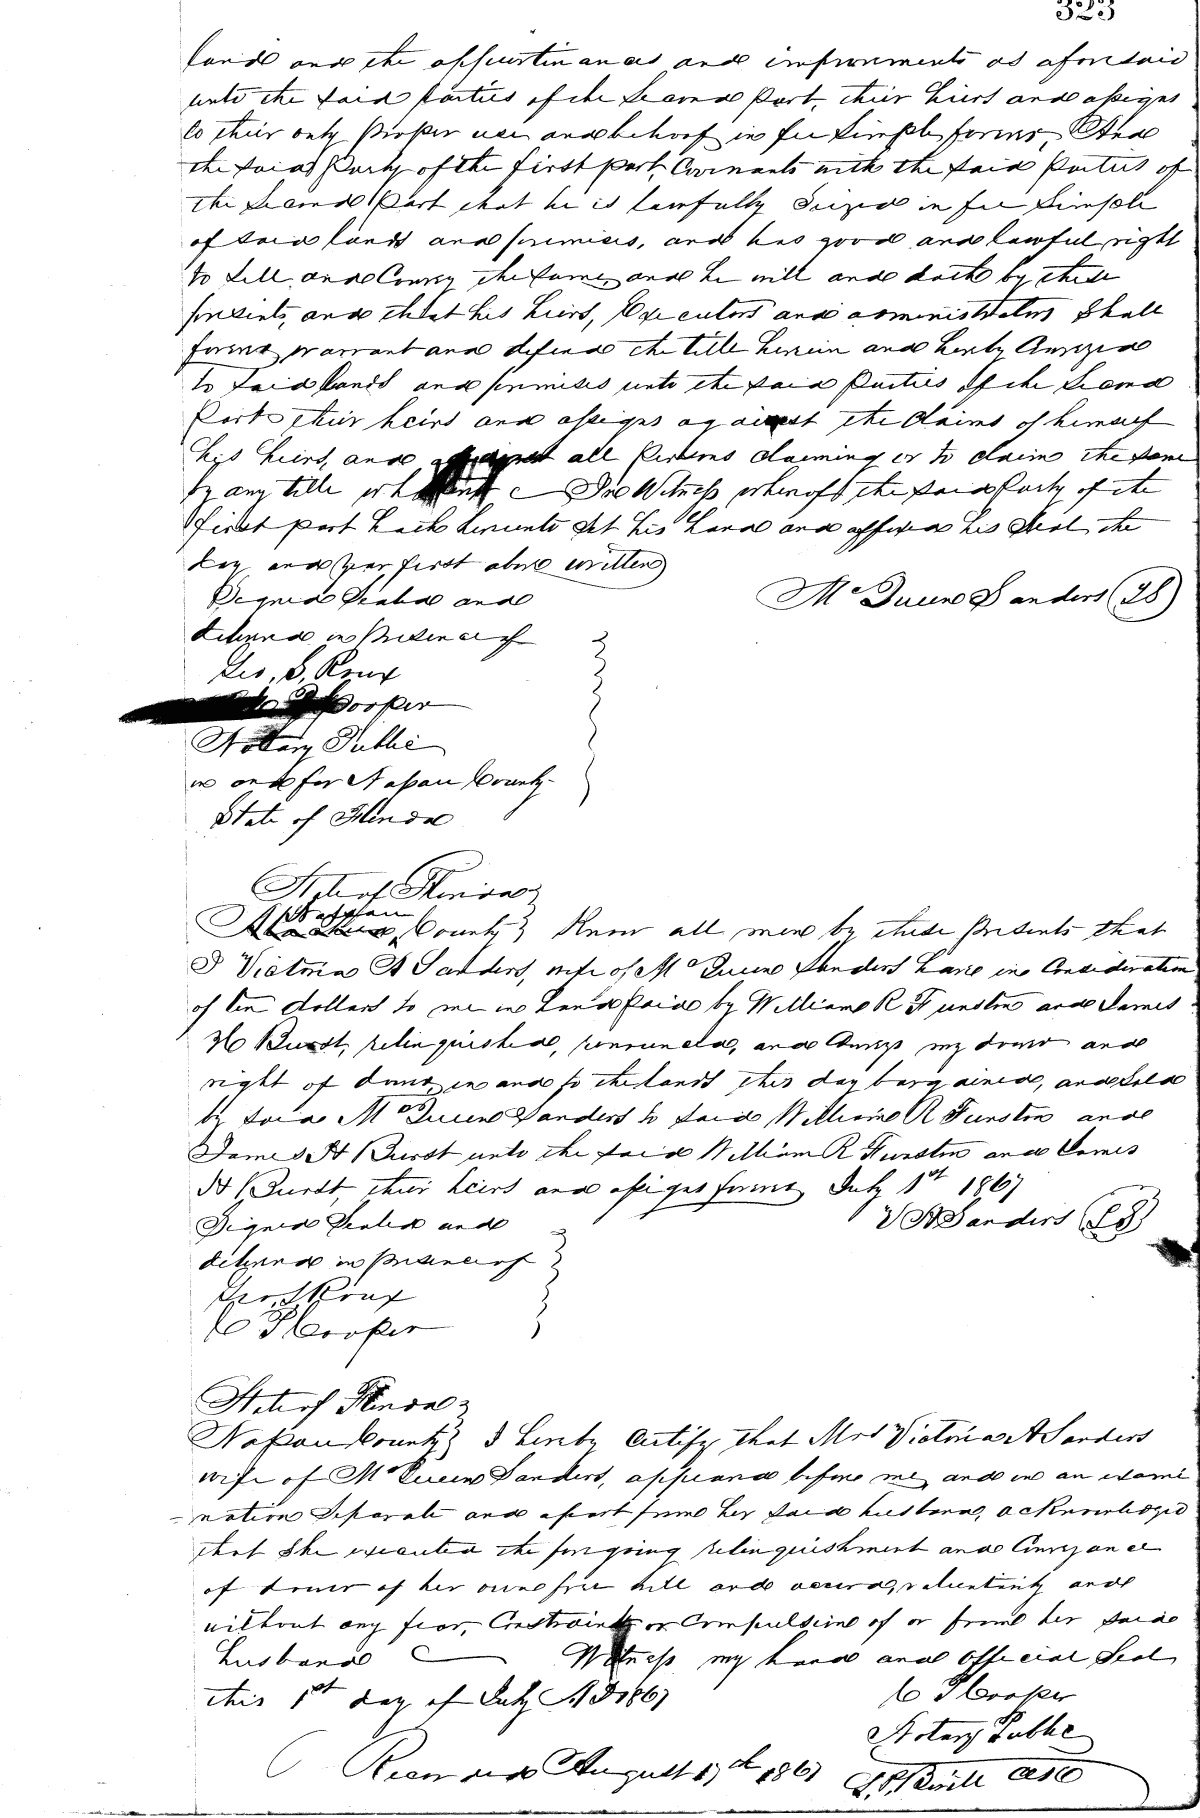 323
land and the appurtinances and improvments as aforesaid
unto the said parties of the Second Part, their heirs and assigns
to their only proper use and behoof in fee Simple forever, And
the said Party of the first part, Covenants with the said Parties of
the Second Part that he is lawfully Seized in fee Simple
of said lands and premises, and has good and lawful right
to Sell and Convey the same, and he will and doth by these
presents, and that his heirs, Executors and administrators Shall
forever warrant and defend the title herein and hereby Conveyed
to said lands and premises unto the said Parties of the Second
Part their heirs and assigns against the Claims of himself
his heirs, and against all Persons claiming or to claim the same
by any title In Witness whereof the said Party of the
first part hath hereunto Set his hand and affixed his Seal the
day and year first above written
Signed Sealed and McQueen Sanders (LS)
delivered in presence of
Geo. S. Roux
Cooper
Notary Public
in and for Nassau County
State of Florida
State of Florida
Nassau
County } Know all men by these presents that
I Victoria A Sanders, wife of McQueen Sanders have in Consideration
of ten dollars to me in hand paid by William R Funston and James
H Burst, relinquished, renounced, and Conveys my dower and
right of dower, in and to the lands this day bargained, and Sold
by said McQueen Sanders to said William R Funston and
James H Burst unto the said William R Funston and James
H Burst, their heirs and assigns forever July 1st 1867
Signed Sealed and V A Sanders (LS)
delivered in presence of
Geo. S Roux
C F Cooper
State of Florida
Nassau County } I hereby Certify that Mrs Victoria A Sanders
wife of McQueen Sanders, appeared before me, and in an exami
nation Separate and apart from her said husband, acknowledged
that She executed the foregoing relinquishment and Conveyance
of dower of her own free will and accord, voluntarily and
without any fear, Constraint or Compulsion of or from her said
husband Witness my hand and official Seal
this 1st day of July A D 1867 C F Cooper
Notary Public
Recorded August 17th 1867